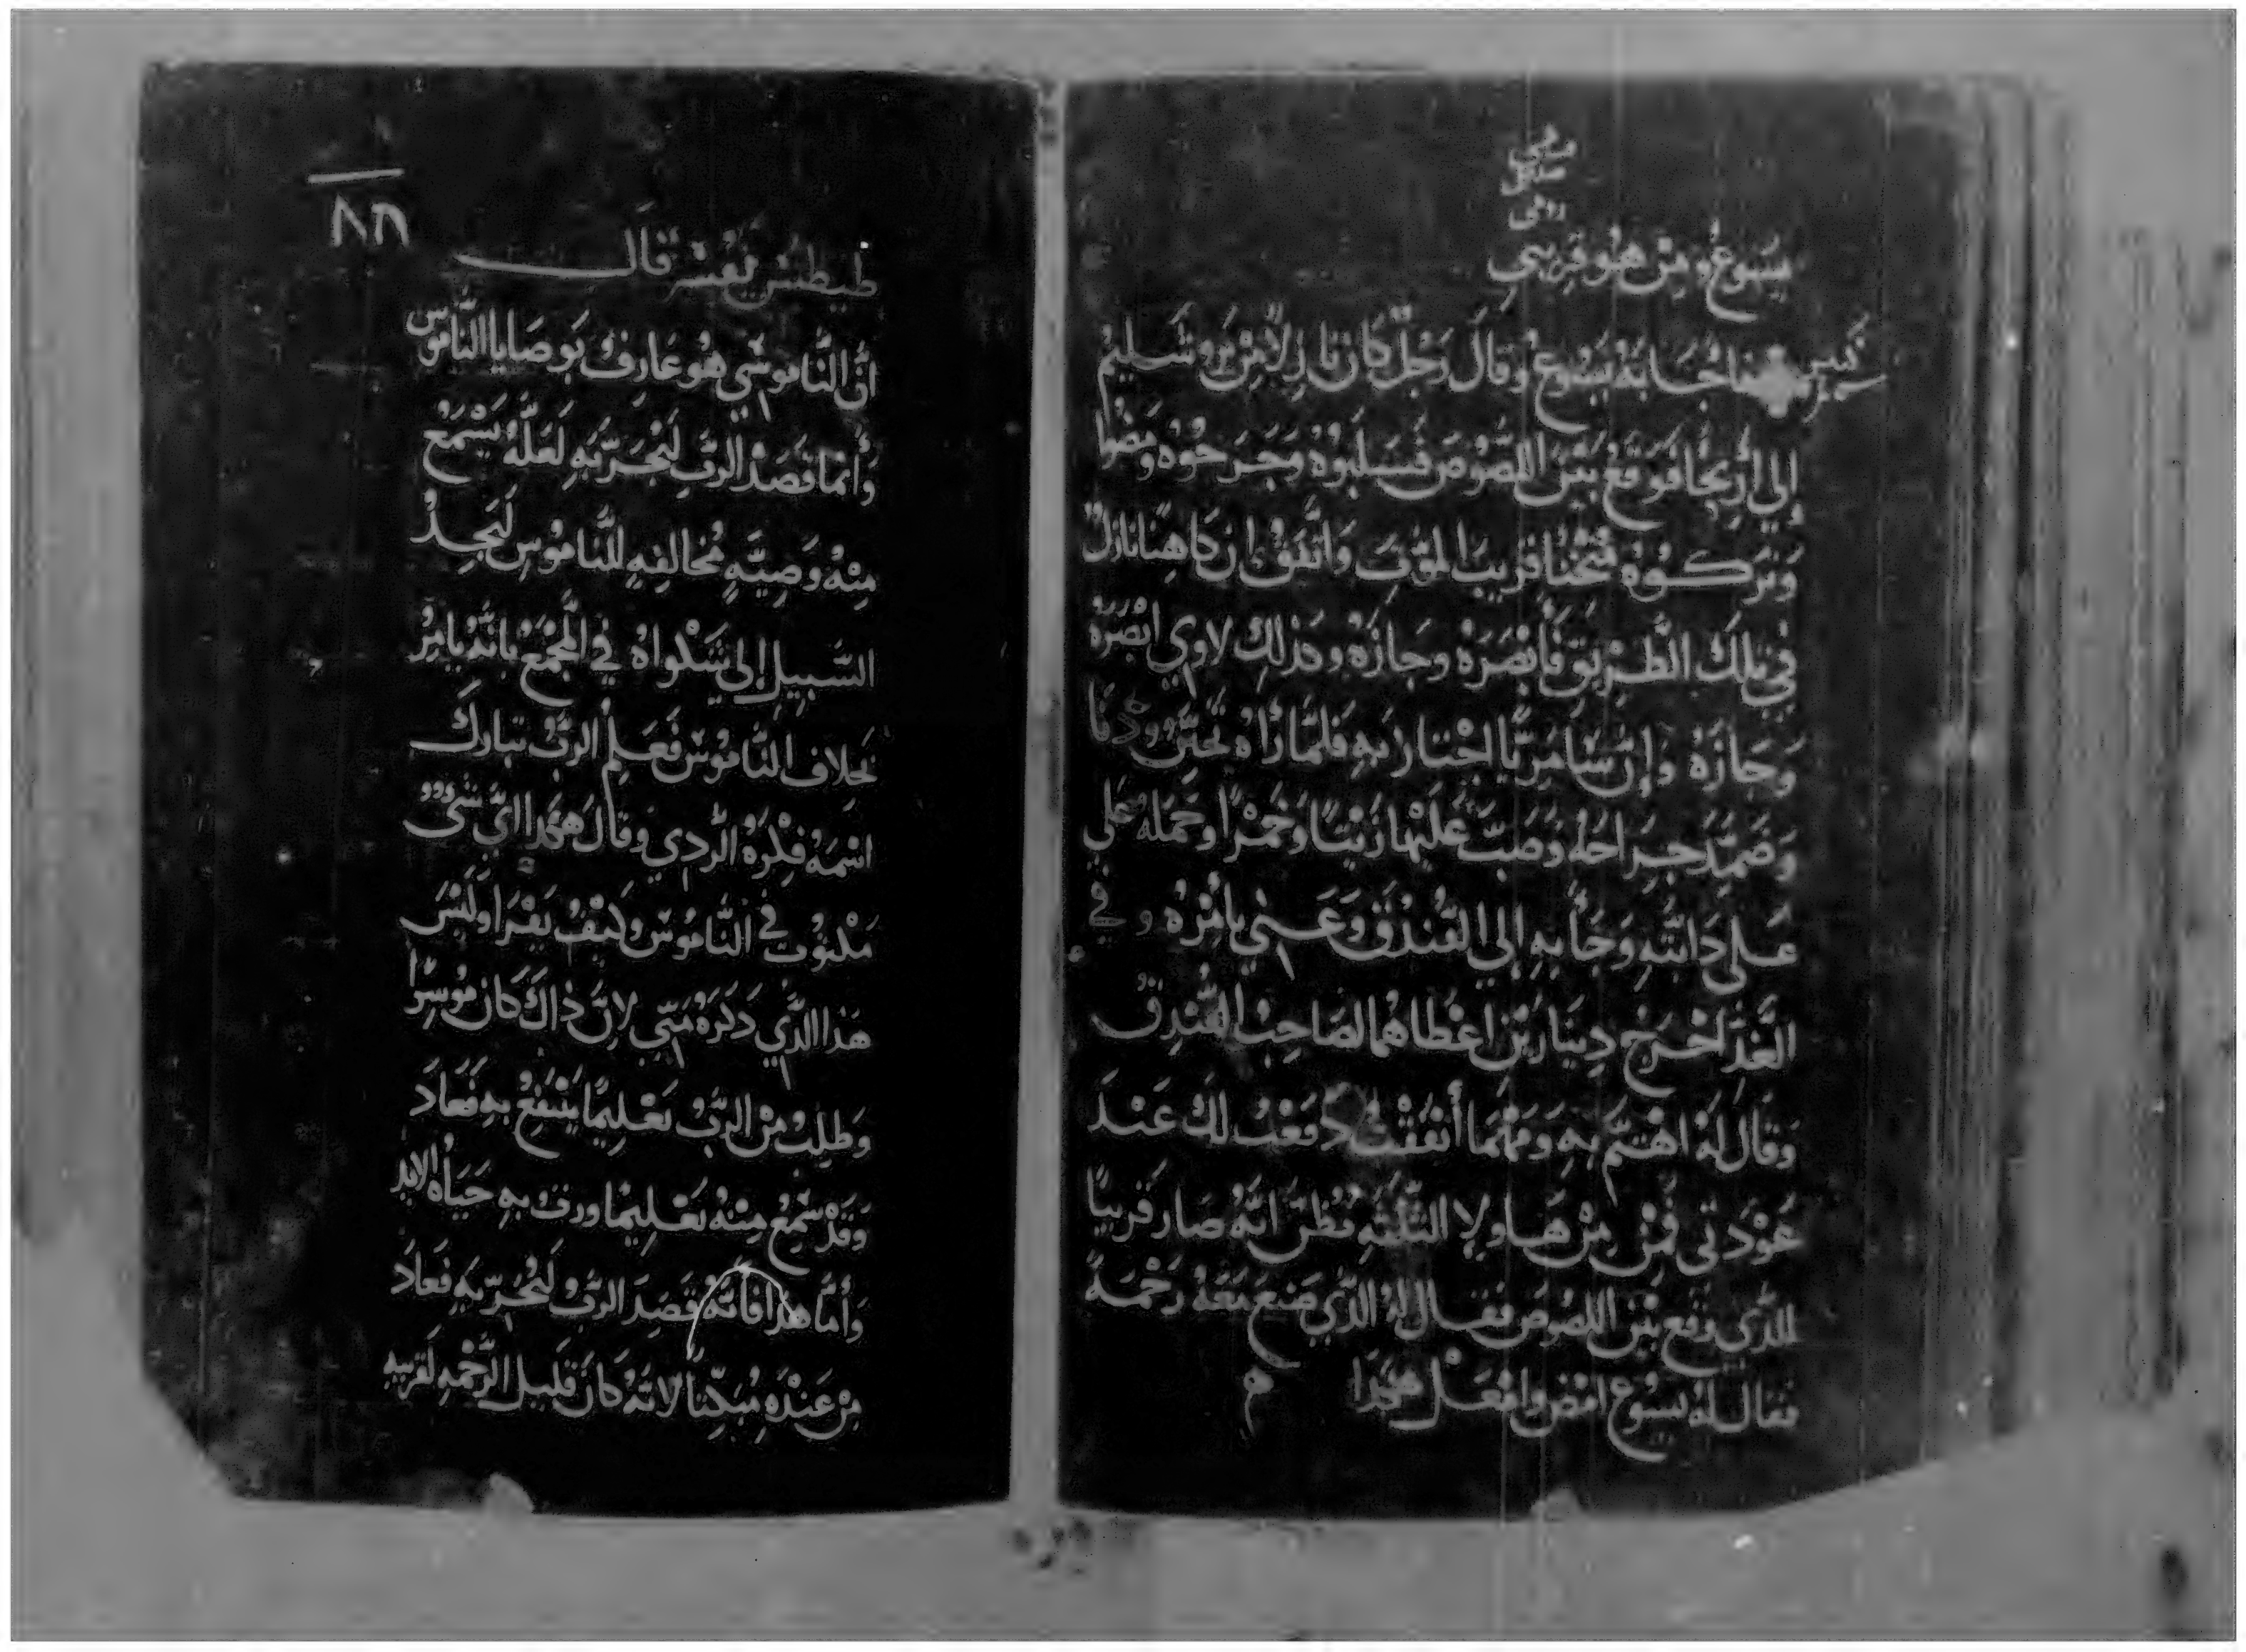 يسوع ومن هو قريبي
فاجابه يسوع وقال رجل كان نازلا من يروشليم
إلي أريحا فوقع بين اللصوص فسلبوه وجرحوه ومضوا
وتركوه مثخنا قريب الموت واتفق ان كاهنا نازل
في تلك الطريق فأبصره وجازه وكذلك لاوي ابصره
وجازه وإن سامريا اجتاز به فلما رأاه تحنن ودنا
وضمد جراحه وصب عليها زيتا وخمرا وحمله علي
علي دابته وجأ به إلي الفندق وعني بامره وفي
الغد اخرج دينارين اعطاهما لصاحب الفندق
وقال له اهتم به ومهما أنفقت دفعت لك عند
عودتي فمن من هاولإ الثلثه تظن انه صار قريبا
للذي وقع بين اللصوص فقال له الذي صنع معه رحمة
فقال له يسوع امض وافعل هكذا
طيطس يفسر قال
ان الناموسي هو عارف بوصايا الناموس
وأنما قصد الرب ليجربه لعله يسمع
منه وصيه مخالفه للناموس ليجد
السبيل إلي يشكواه في المجمع بانه يامر
بخلاف الناموس فعلم الرب تبارك
اسمه فكره الردي وقال هكذا اي شي
مكتوب في الناموس وكيف يقرا وليس
هذا الذي ذكره متي لان ذاك كان موسرا
وطلب من الرب تعليما ينتفع به فعاد
وقد سمع منه تعليما ورث به حياه الابد
وأما هذا فانه قصد الرب ليجربه فعاد
من عنده مبكتا لانه كان قليل الرحمه لقريبه